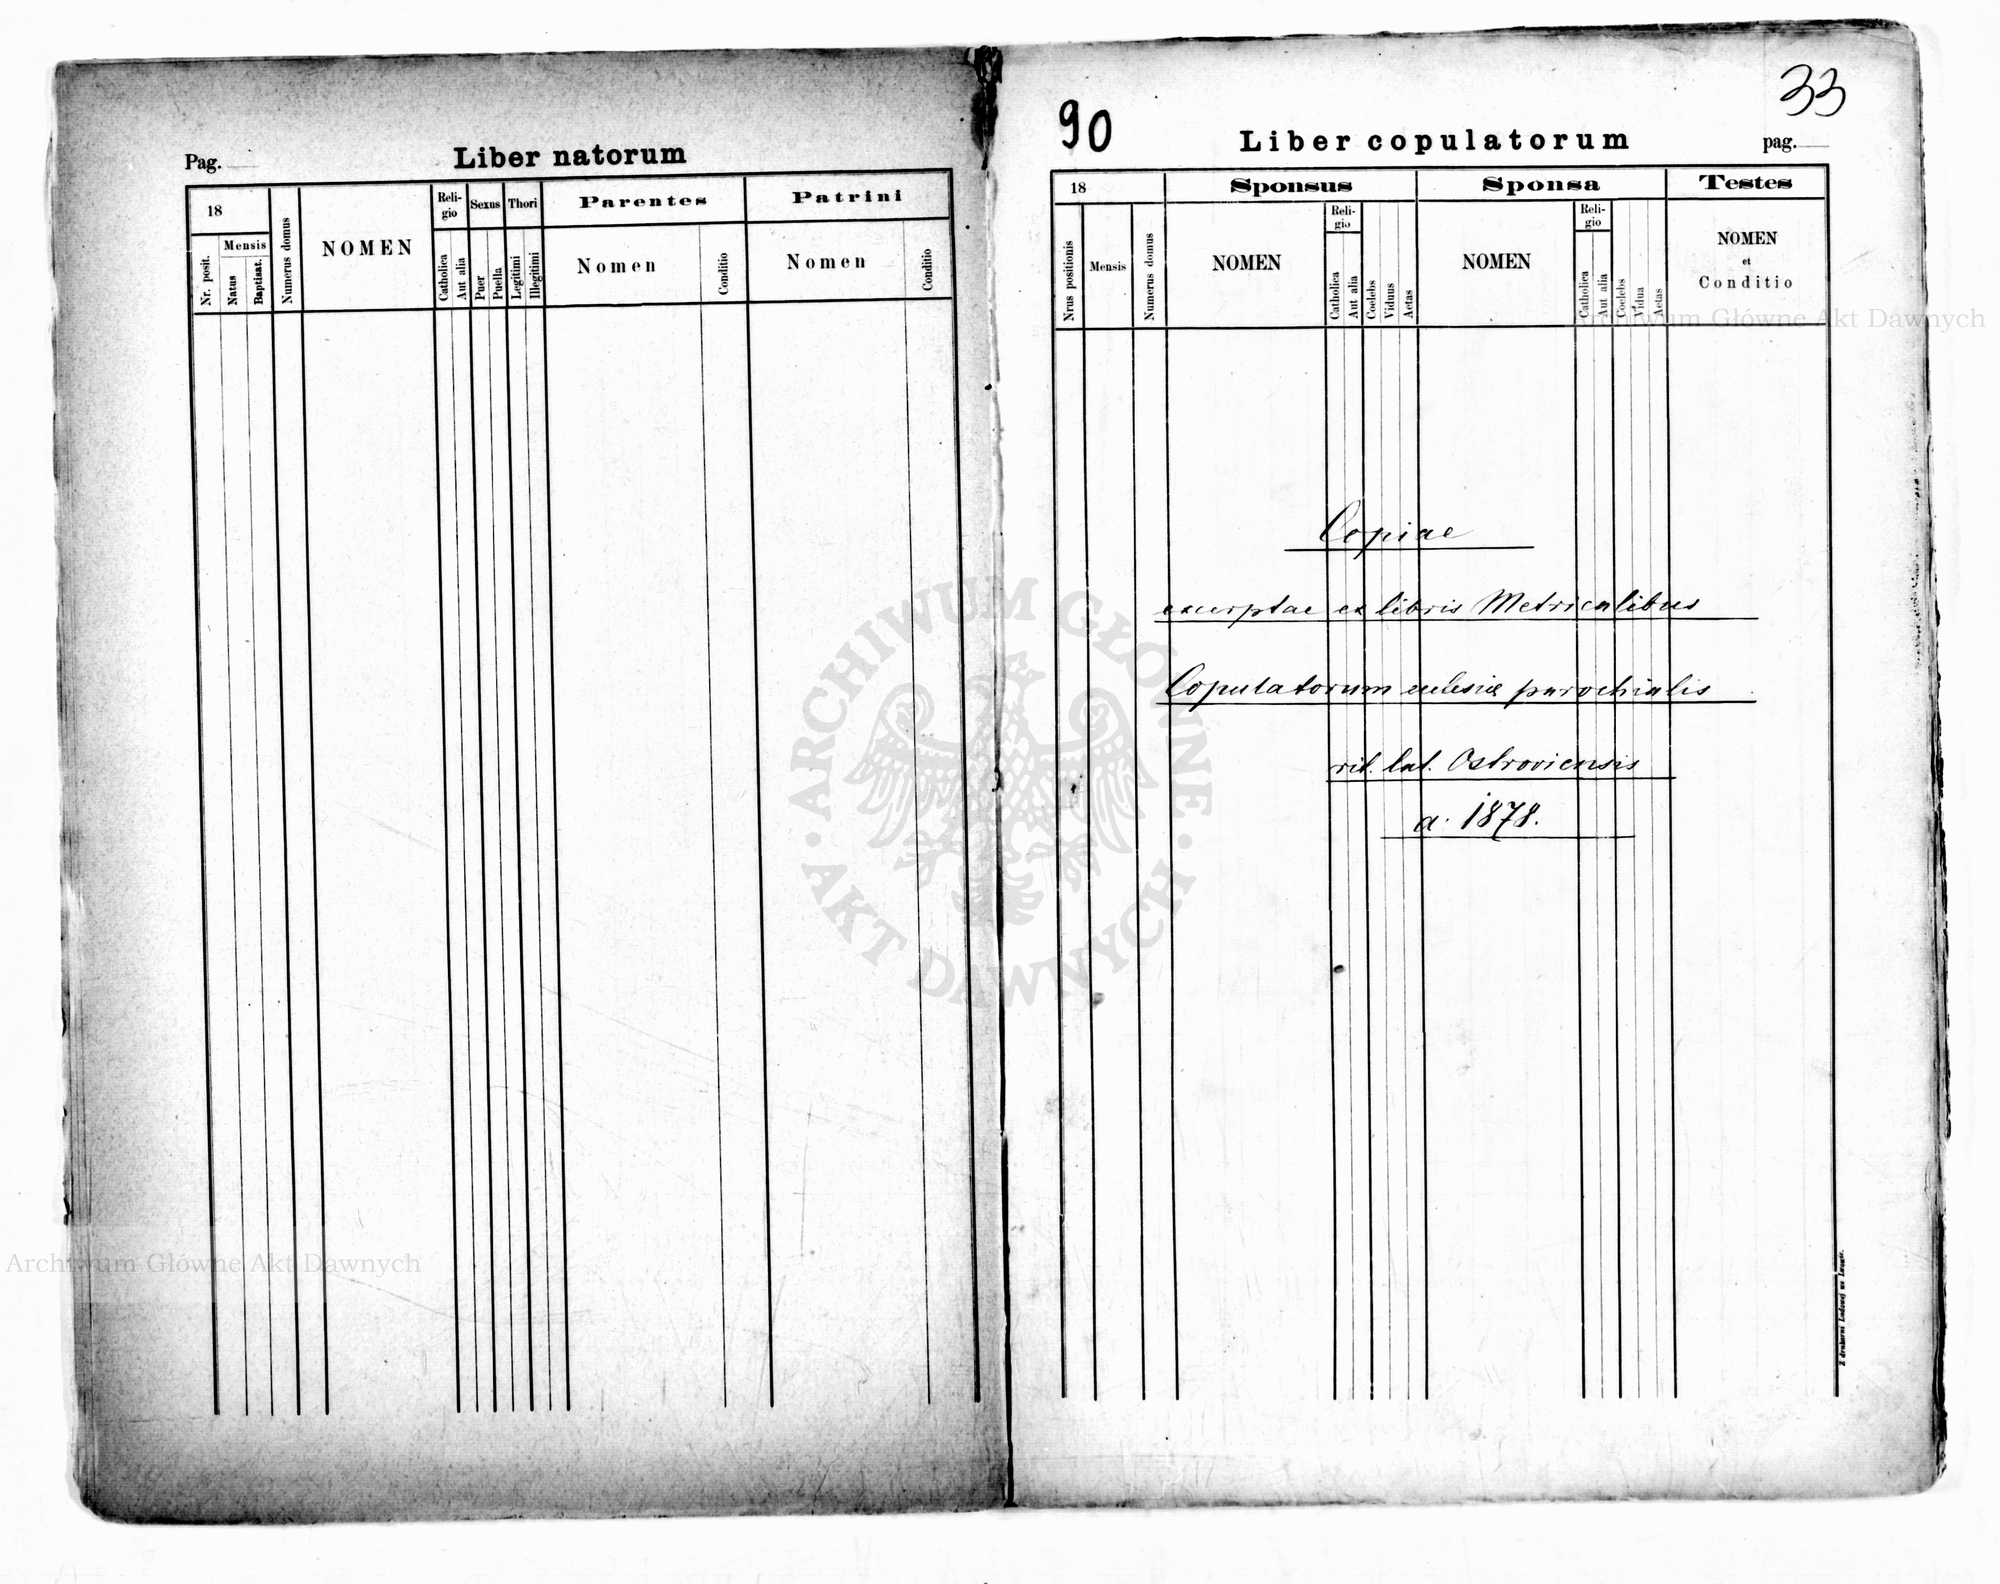 Pag.
Liber natorum
18
Mensis
Nr. posit.
Natus
Baptisat.
Numerus domus
NOMEN
Reli-
gio
Catholica
Aut alia
Sexus
Puer
Puella
Thori
Legitimi
Illegitimi
Parentes
Nomen
Conditio
Patrini
Nomen
Conditio
90
33
Liber copulatorum
pag.
18
Nrus positionis
Mensis
Numerus domus
Sponsus
NOMEN
Reli-
gio
Catholica
Aut alia
Coelebs
Viduus
Aetas
Sponsa
NOMEN
Reli-
gio
Catholica
Aut alia
Coelebs
Vidua
Aetas
Testes
NOMEN
et
Conditio
Copiae
excerptae ex libris Metricalibus
Copulatorum eclesiæ parochialis
rit. lat. Ostroviensis
a. 1878.
Z drukarni Ludowej we Lwowie.
Archiwum Główne Akt Dawnych
ARCHIWUM GŁÓWNE AKT DAWNYCH
Archiwum Główne Akt Dawnych